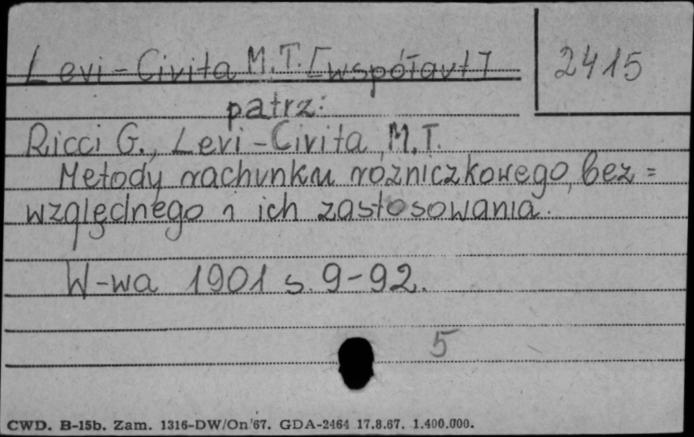 Levi-Civita M.T. [współaut]
2415
patrz:
Ricci G., Levi-Civita M.T.
Metody rachunku rozniczkowego, bez=
względnego i ich zastosowania.
W-wa 1901 s. 9-92.
5
CWD. B-15b. Zam. 1316-DW/On/67. GDA-2464 17.8.67. 1.400.000.